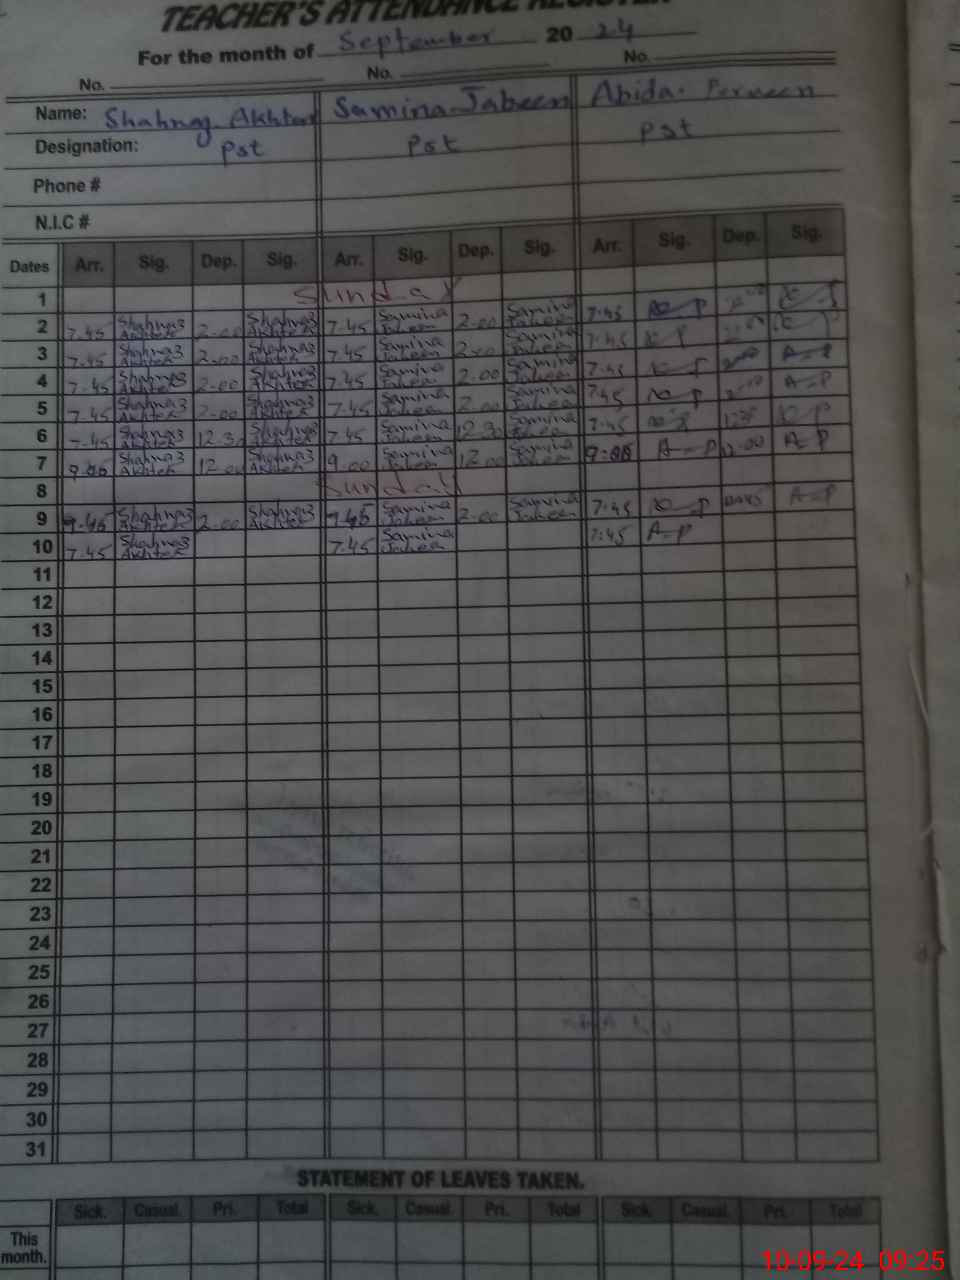 TEACHER'S ATTENDANCE REGISTER
For the month of September 20 24
No. No. No.
Name: Shahnaz Akhter Samina Jabeen Abida Perveen
Designation: Pst Pst Pst
Phone #
N.I.C #
Dates Arr. Sig. Dep. Sig. Arr. Sig. Dep. Sig. Arr. Sig. Dep. Sig.
1 Sunday
2 7.45 Shahnaz Akhter 2.00 Shahnaz Akhter 7.45 Samina Jabeen 2.00 Samina Jabeen 7:45
3 7.45 Shahnaz Akhter 2.00 Shahnaz Akhter 7.45 Samina Jabeen 2.00 Samina Jabeen 7:45
4 7.45 Shahnaz Akhter 2.00 Shahnaz Akhter 7.45 Samina Jabeen 2.00 Samina Jabeen 7:45 A-P
5 7.45 Shahnaz Akhter 2.00 Shahnaz Akhter 7.45 Samina Jabeen 2.00 Samina Jabeen 7:45 A-P
6 7.45 Shahnaz Akhter 12.30 Shahnaz Akhter 7.45 Samina Jabeen 12.30 Samina Jabeen 7:45
7 9.00 Shahnaz Akhter 12.00 Shahnaz Akhter 9.00 Samina Jabeen 12.00 Samina Jabeen 9:00 A-P 12.00 A-P
8 Sunday
9 7.45 Shahnaz Akhter 2.00 Shahnaz Akhter 7.45 Samina Jabeen 2.00 Samina Jabeen 7:45 A-P
10 7.45 Shahnaz Akhter 7.45 Samina Jabeen 7:45 A-P
11
12
13
14
15
16
17
18
19
20
21
22
23
24
25
26
27
28
29
30
31
STATEMENT OF LEAVES TAKEN.
Sick. Casual. Pri. Total Sick. Casual. Pri. Total Sick. Casual. Pri. Total
This
month.
10-09-24 09:25